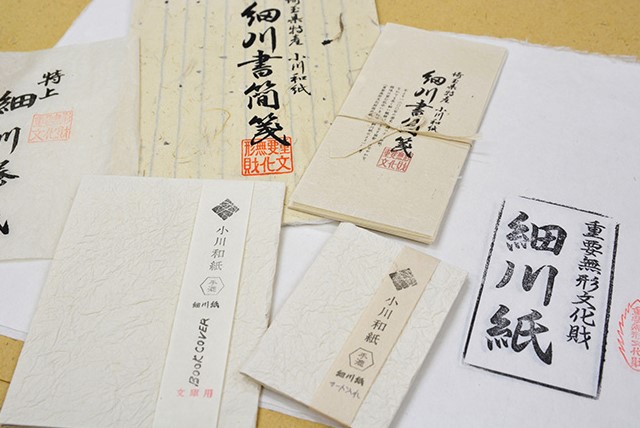 特上
細川
埼玉県特産 小川和紙
細川書簡箋
重要無形文化財
埼玉県特産 小川和紙
細川書簡箋
小川和紙
手漉
細川紙
BOOK COVER
文庫用
小川和紙
手漉
細川紙
カード入れ
重要無形文化財
細川紙